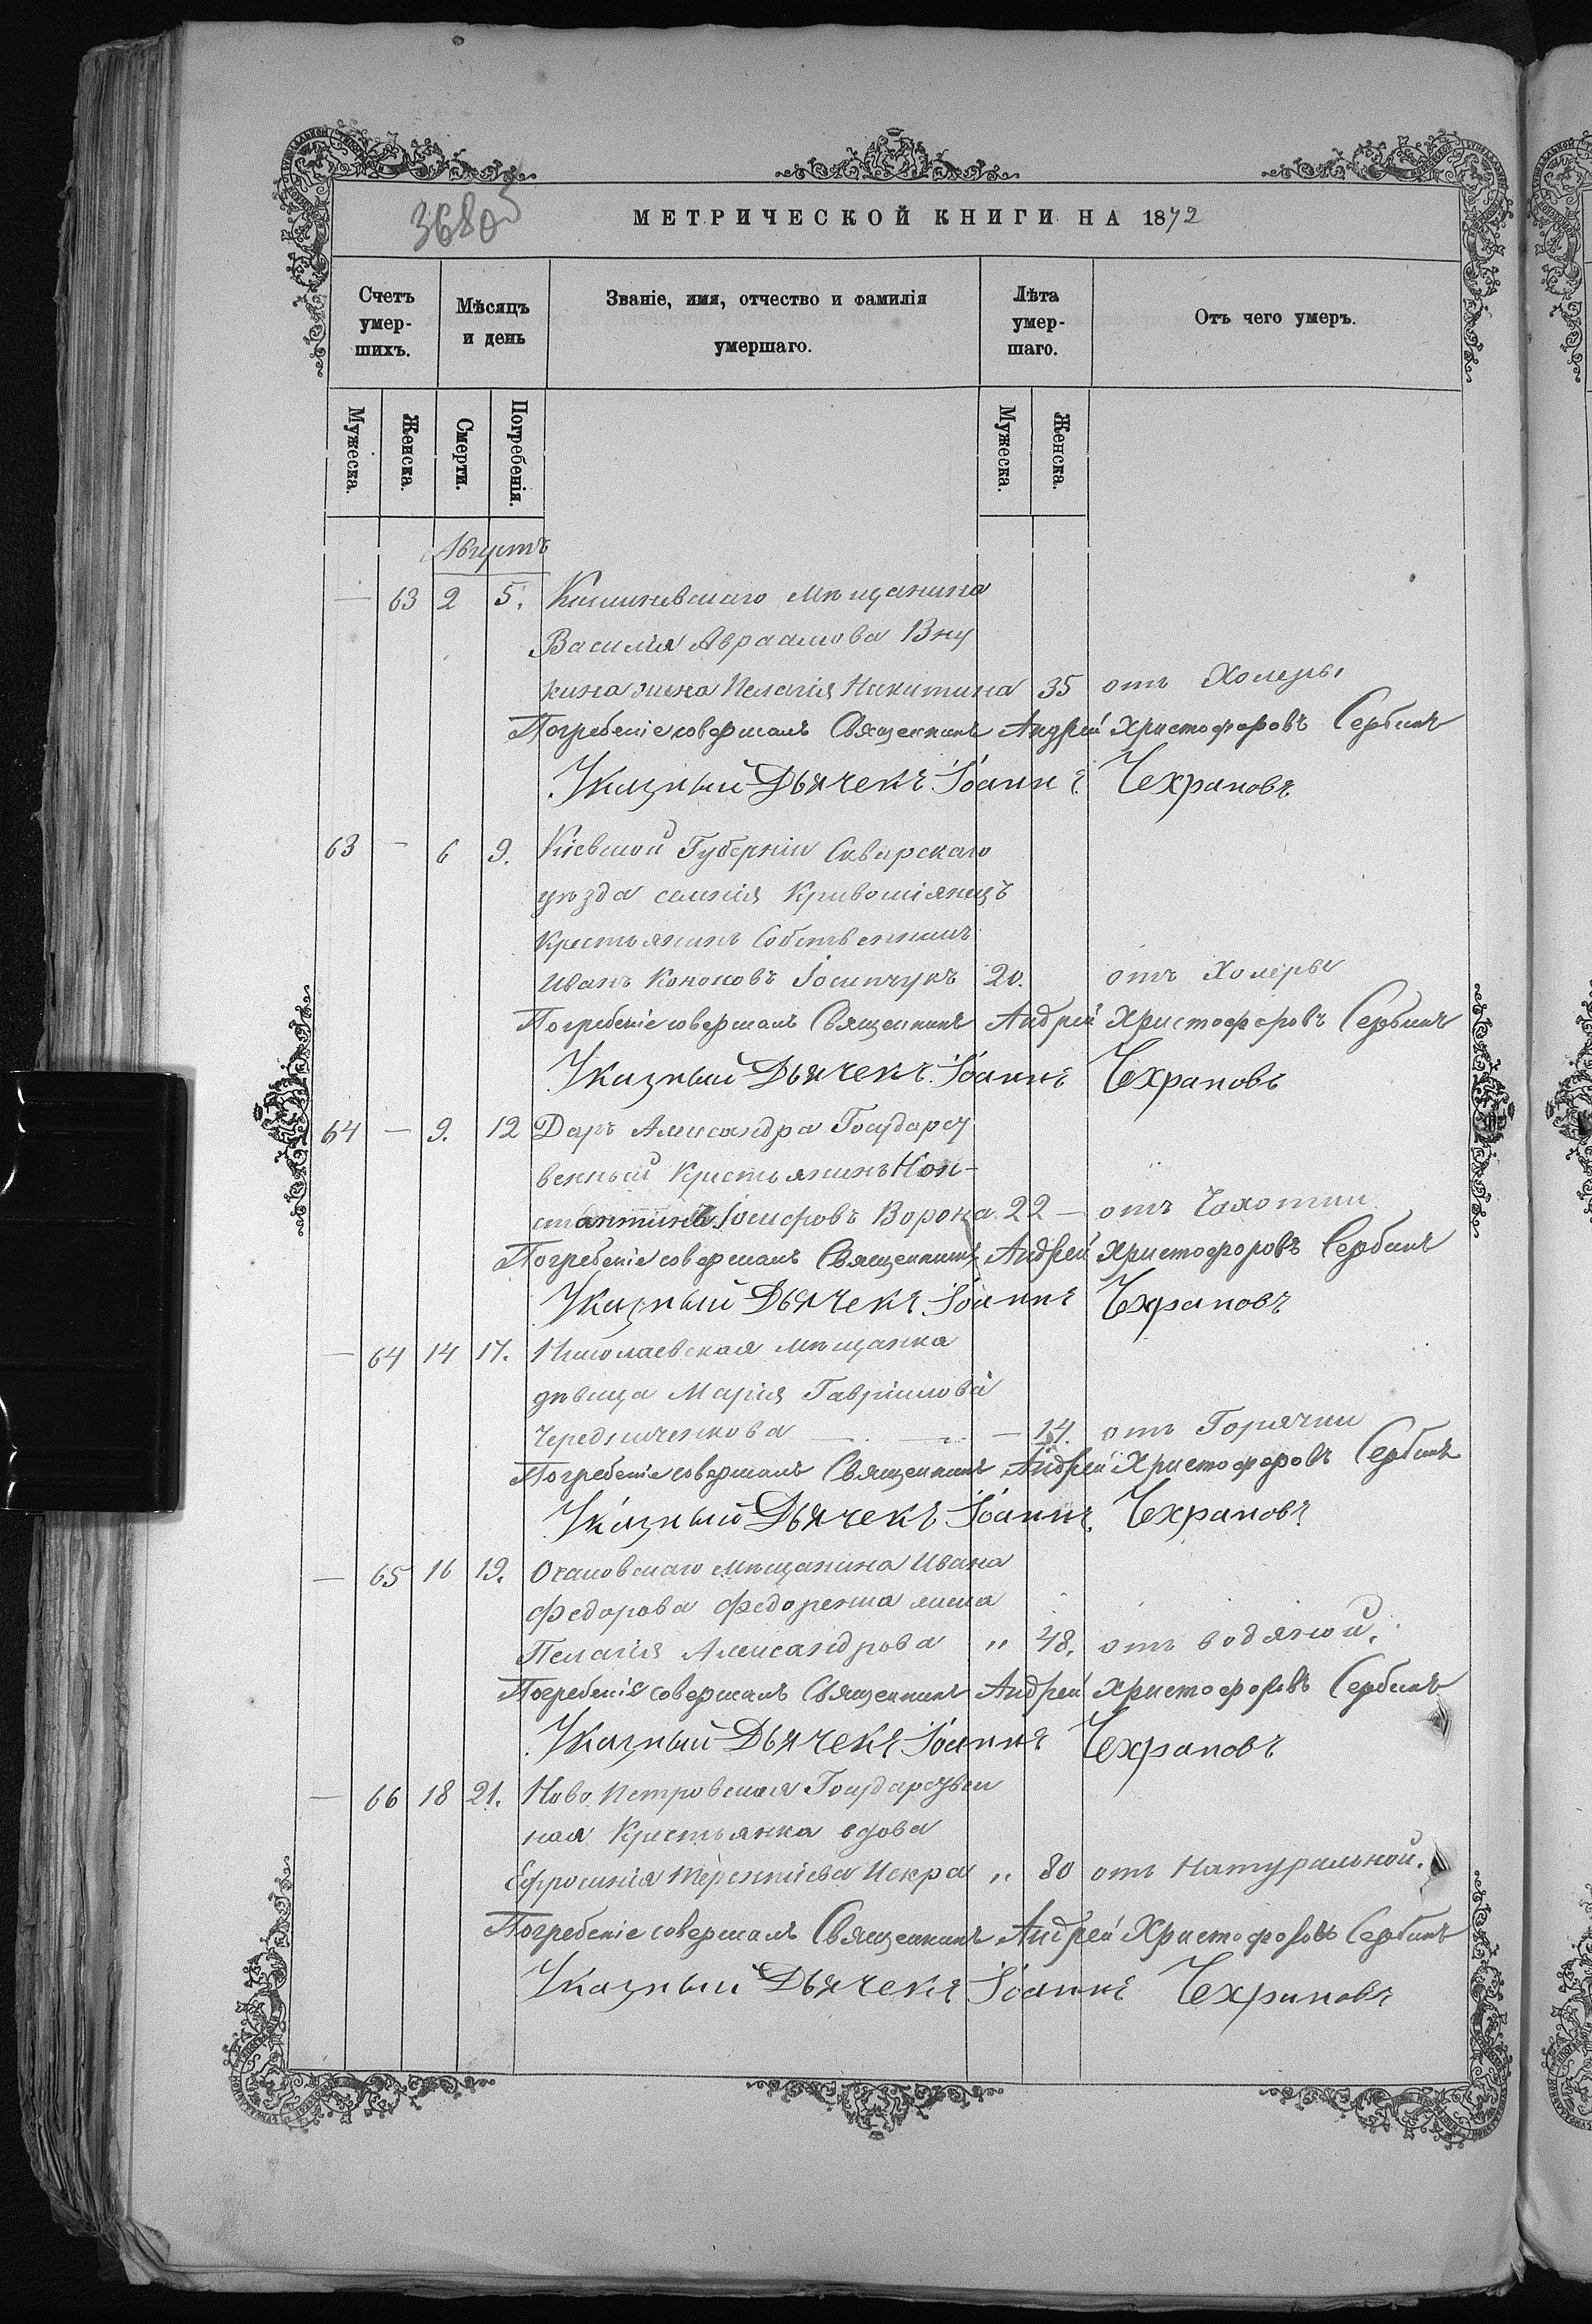 3680
МЕТРИЧЕСКОЙ КНИГИ НА 1872
Счетъ умер-шихъ.
Мѣсяцъ и день
Званіе, имя, отчество и фамилія умершаго.
Лѣта умер-шаго.
Отъ чего умеръ.
Мужеска.
Женска.
Смерти.
Погребенія.
Мужеска.
Женска.
Августъ
— 63 2 5. Кишиневскаго мѣщанина
Василія Авраамова Вну
кина жена Пелагія Никитина 35 отъ Холеры
Погребеніе совершалъ Священникъ Андрей Христофоровъ Сербинъ
Указный Дьячекъ Іоаннъ Чехрановъ
63 — 6 9. Кіевской Губерніи Сквирскаго
уѣзда селенія Кривошіянецъ
Крестьянинъ Собственникъ
Иванъ Кононовъ Іосипчукъ 20. отъ Холеры
Погребеніе совершалъ Священникъ Андрей Христофоровъ Сербинъ
Указный Дьячекъ Іоаннъ Чехрановъ
64 — 9. 12 Даръ Александра Государст
венный Крестьянинъ Кон-
стантинъ Іосифовъ Ворона 22 — отъ Чахотки
Погребеніе совершалъ Священникъ Андрей Христофоровъ Сербинъ
Указный Дьячекъ Іоаннъ Чехрановъ
— 64 14 17. Николаевская мѣщанка
дѣвица Марія Гавріилова
Чередниченкова — 14. отъ Горячки
Погребеніе совершалъ Священникъ Андрей Христофоровъ Сербинъ
Указный Дьячекъ Іоаннъ Чехрановъ
— 65 16 19. Очаковскаго мѣщанина Ивана
Федорова Федоренка жена
Пелагія Александрова " 48. отъ водяной.
Погребеніе совершалъ Священникъ Андрей Христофоровъ Сербинъ
Указный Дьячекъ Іоаннъ Чехрановъ
— 66 18 21. Ново Петровская Государствен
ная Крестьянка вдова
Ефросинія Терентіева Искра " 80 отъ Натуральной.
Погребеніе совершалъ Священникъ Андрей Христофоровъ Сербинъ
Указный Дьячекъ Іоаннъ Чехрановъ